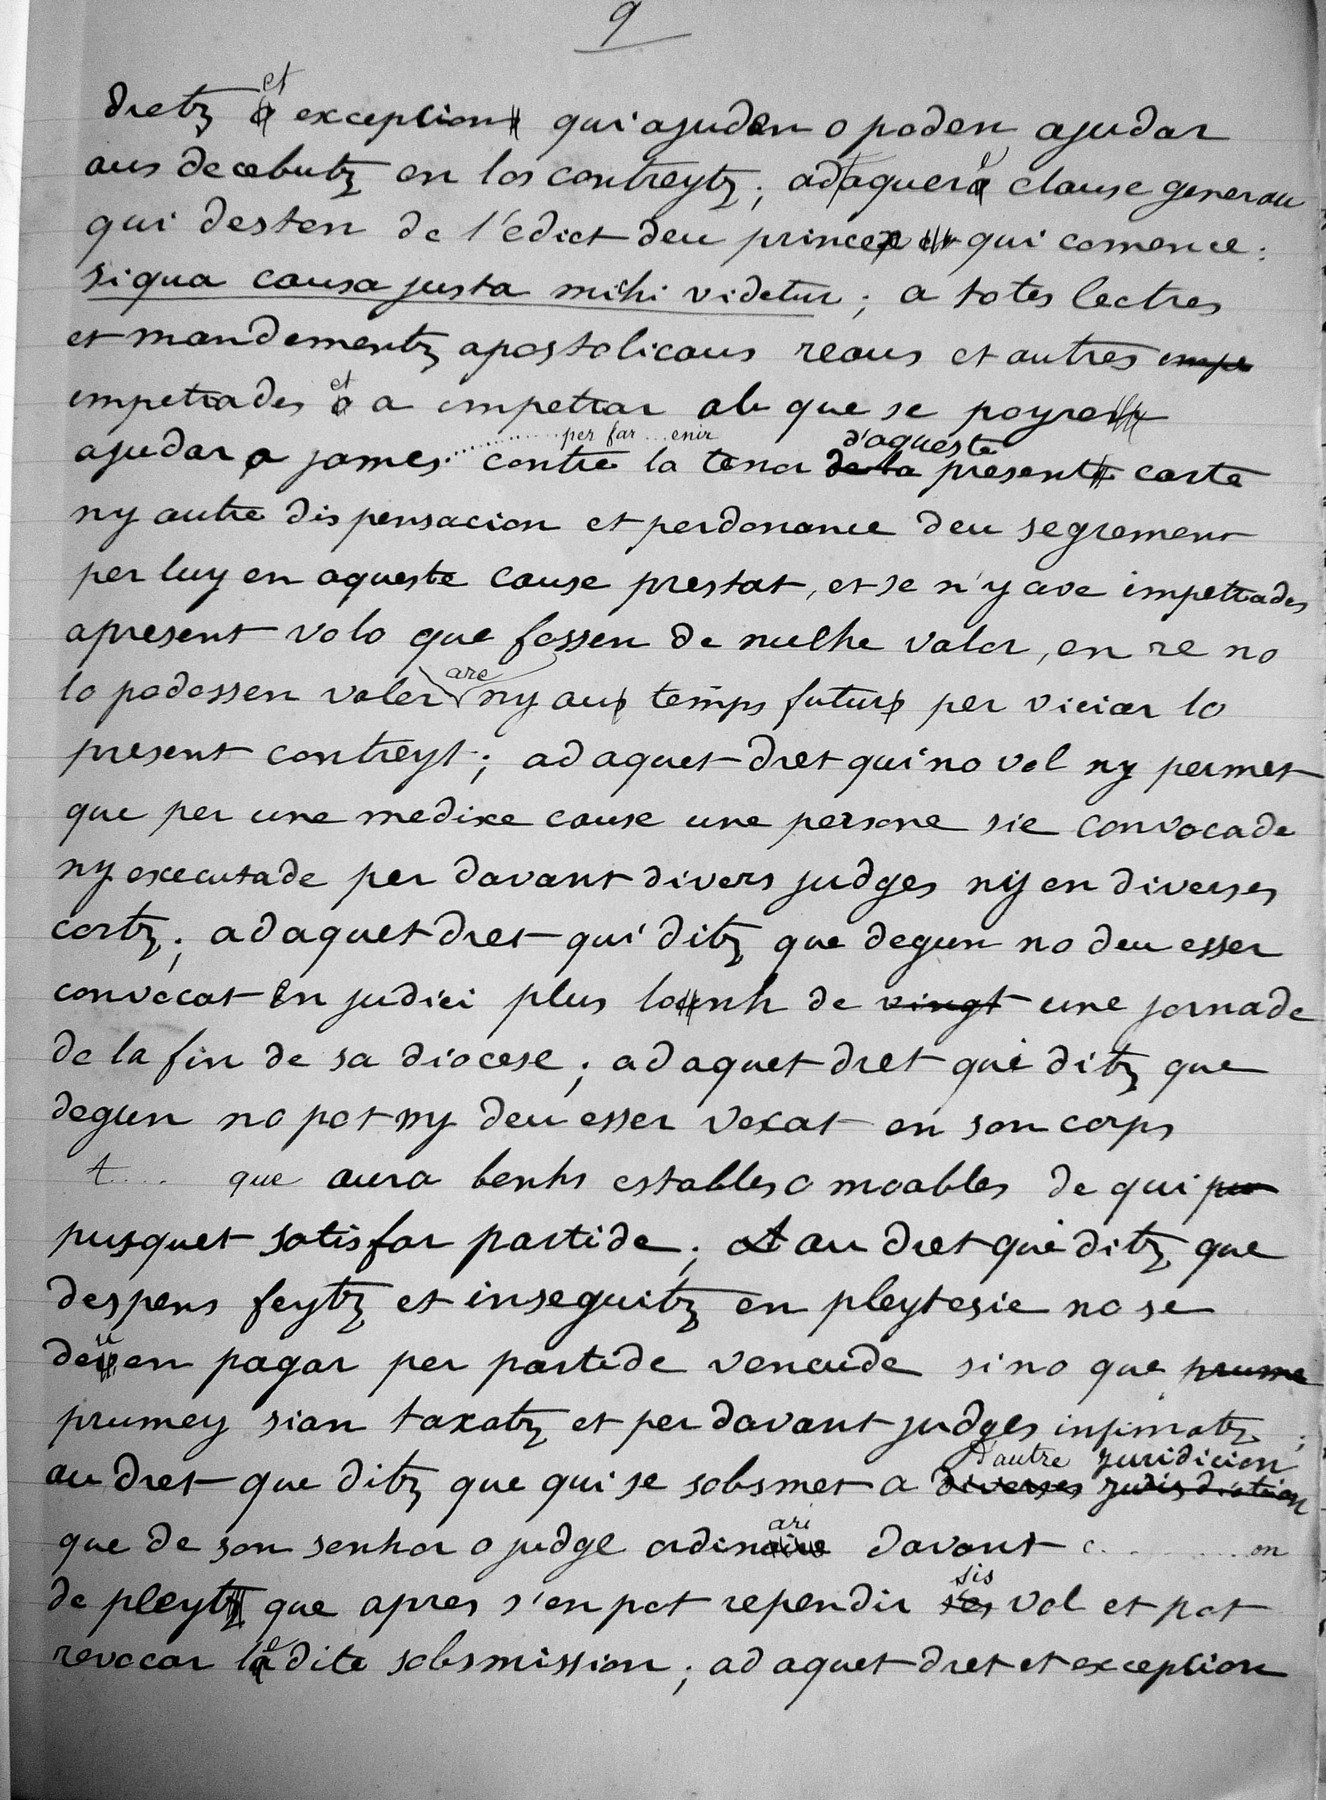 9
dretz et exception qui ajuden o poden ajudar
aus decebutz en los contreytz ; ad aquere clause generau
qui desten de l'édict deu prince qui comence :
si qua causa justa mihi videtur ; a totes lectres
et mandementz apostolicaus reaus et autres impe
impetrades et a impetrar ab que se poyre
ajudar a james ............ per far ... enir contre la tenor de la d'aqueste present carte
ny autre dispensacion et perdonance deu segrement
per luy en aqueste cause prestat, et se n'y ave impetrades
apresent volo que fossen de nulhe valor, en re no
lo podossen valer are ny au temps futur per viciar lo
present contreyt ; ad aquet dret qui no vol ny permet
que per une medixe cause une persone sie convocade
ny executade per davant divers judges ny en diverses
cortz ; ad aquet dret qui ditz que degun no deu esser
convocat en judici plus lonh de vingt une jornade
de la fin de sa diocese ; ad aquet dret qui ditz que
degun no pot ny deu esser vexat en son corps
t.... que aura benhs estables o moables de qui pu
pusquet satisfar partide ; et au dret qui ditz que
despens feytz et inseguitz en pleytesie no se
deuen pagar per partide vencude sino que prume
prumey sian taxatz et per davant judges infimatz ;
au dret que ditz que qui se sobsmet a diverses jurisdiction d'autre juridicion
que de son senhor o judge ordinari davant c........... on
de pleyt que apres s'en pot rependir ses sis vol et pot
revocar le dite sobsmission ; ad aquet dret et exception